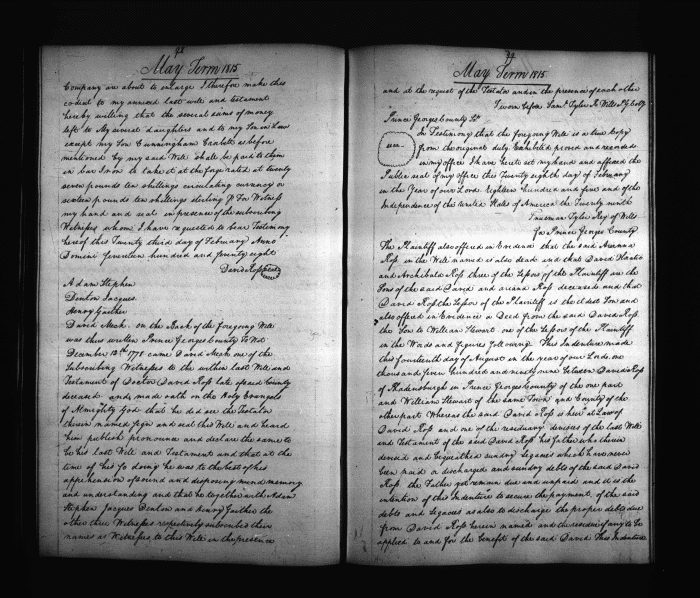 98
May Term 1815
Company are about to enlarge I therefore make this
codicil to my annexed last will and testament
hereby willing that the several sums of money
left to My several daughters and to my Son in Law
except my Son Cunningham as before
mentioned by my said Will shall be paid to them
in bar Iron to take it at the forge rated at twenty
seven pounds ten shillings circulating currency or
sixteen pounds ten shillings sterling P Ton Witness
my hand and seal in presence of the subscribing
Witnesses whom I have requested to bear Testimony
hereof this Twenty third day of February Anno
Domini Seventeen hundred and seventy eight
David Ross seal
Adam Stephen
Denton Jacques
Henry Gaither
David Meek. on the Back of the foregoing Will
was thus written Prince Georges County To Wit
December 12th 1778 came David Meek one of the
Subscribing Witnesses to the within last Will and
Testament of Doctor David Ross late of said County
deceased and made oath on the Holy Evangels
of Almighty God that he did see the Testator
therein named sign and seal this Will and heard
him publish pronounce and declare the same to
be his last Will and Testament and that at the
time of his so doing he was to the best of his
apprehension of sound and disposing mind memory
and understanding and that he together with Adam
Stephen Jacques Denton and Henry Gaither the
other three Witnesses respectively subscribed their
names as Witnesses to this Will in the presence
99
May Term 1815
and at the request of the Testator and in the presence of each other
Sworn before Saml Tyler Regr Wills P G Coty
Prince Georges County Sct
In Testimony that the foregoing Will is a true Copy
from the original duly Exhibited proved and recorded
in my office I have hereto set my hand and affixed the
Public seal of my office this Twenty eighth day of February
in the Year of our Lord Eighteen hundred and five and of the
Independence of the United States of America the Twenty ninth
Trueman Tyler Reg of Wills
for Prince Georges County
The Plaintiff also offered in Evidence that the said Arianna
Ross in the Will named is also dead and that David Horatio
and Archibald Ross three of the Lessors of the Plaintiff are the
Sons of the said David and Ariana Ross deceased and that
David Ross the Lessor of the Plaintiff is the eldest Son and
also offered in Evidence a Deed from the said David Ross
the Son to William Stewart one of the Lessors of the Plaintiff
in the Words and figures following This Indenture made
this fourteenth day of August in the year of our Lord one
thousand seven hundred and ninety nine Between David Ross
of Bladensburgh in Prince Georges County of the one part
and William Stewart of the same Town and County of the
other part Whereas the said David Ross is heir at Law of
David Ross and one of the residuary devisees of the last Will
and Testament of the said David Ross his father who therein
devised and bequeathed sundry Legacies which have never
been paid or discharged and sundry debts of the said David
Ross the Father yet remain due and unpaid and it is the
intention of this Indenture to secure the payment of the said
debts and Legacies as also to discharge the proper debts due
from David Ross herein named and the residue if any to be
applied to and for the benefit of the said David This Indenture